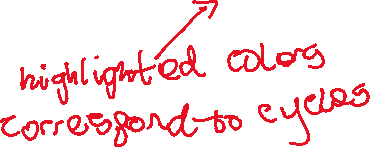 highlighted colors
correspond to cycles